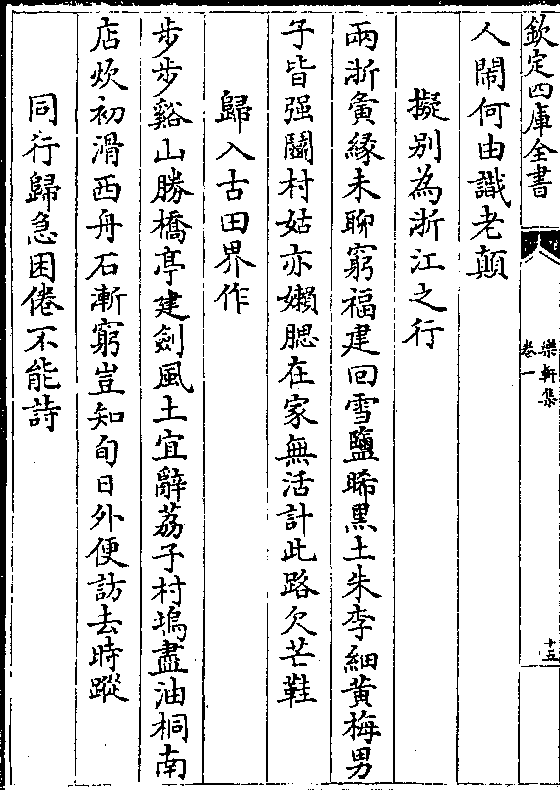 欽定四庫全書
樂軒集
卷一
十五
人閙何由識老顛
擬別為浙江之行
兩浙夤緣未聊窮福建回雪鹽晞黒土朱李細黄梅男
子皆强鬬村姑亦嬾腮在家無活計此路欠芒鞋
歸入古田界作
步步谿山勝橋亭建劍風土宜辭荔子村塢盡油桐南
店炊初滑西舟石漸窮豈知旬日外便訪去時蹤
同行歸急困倦不能詩